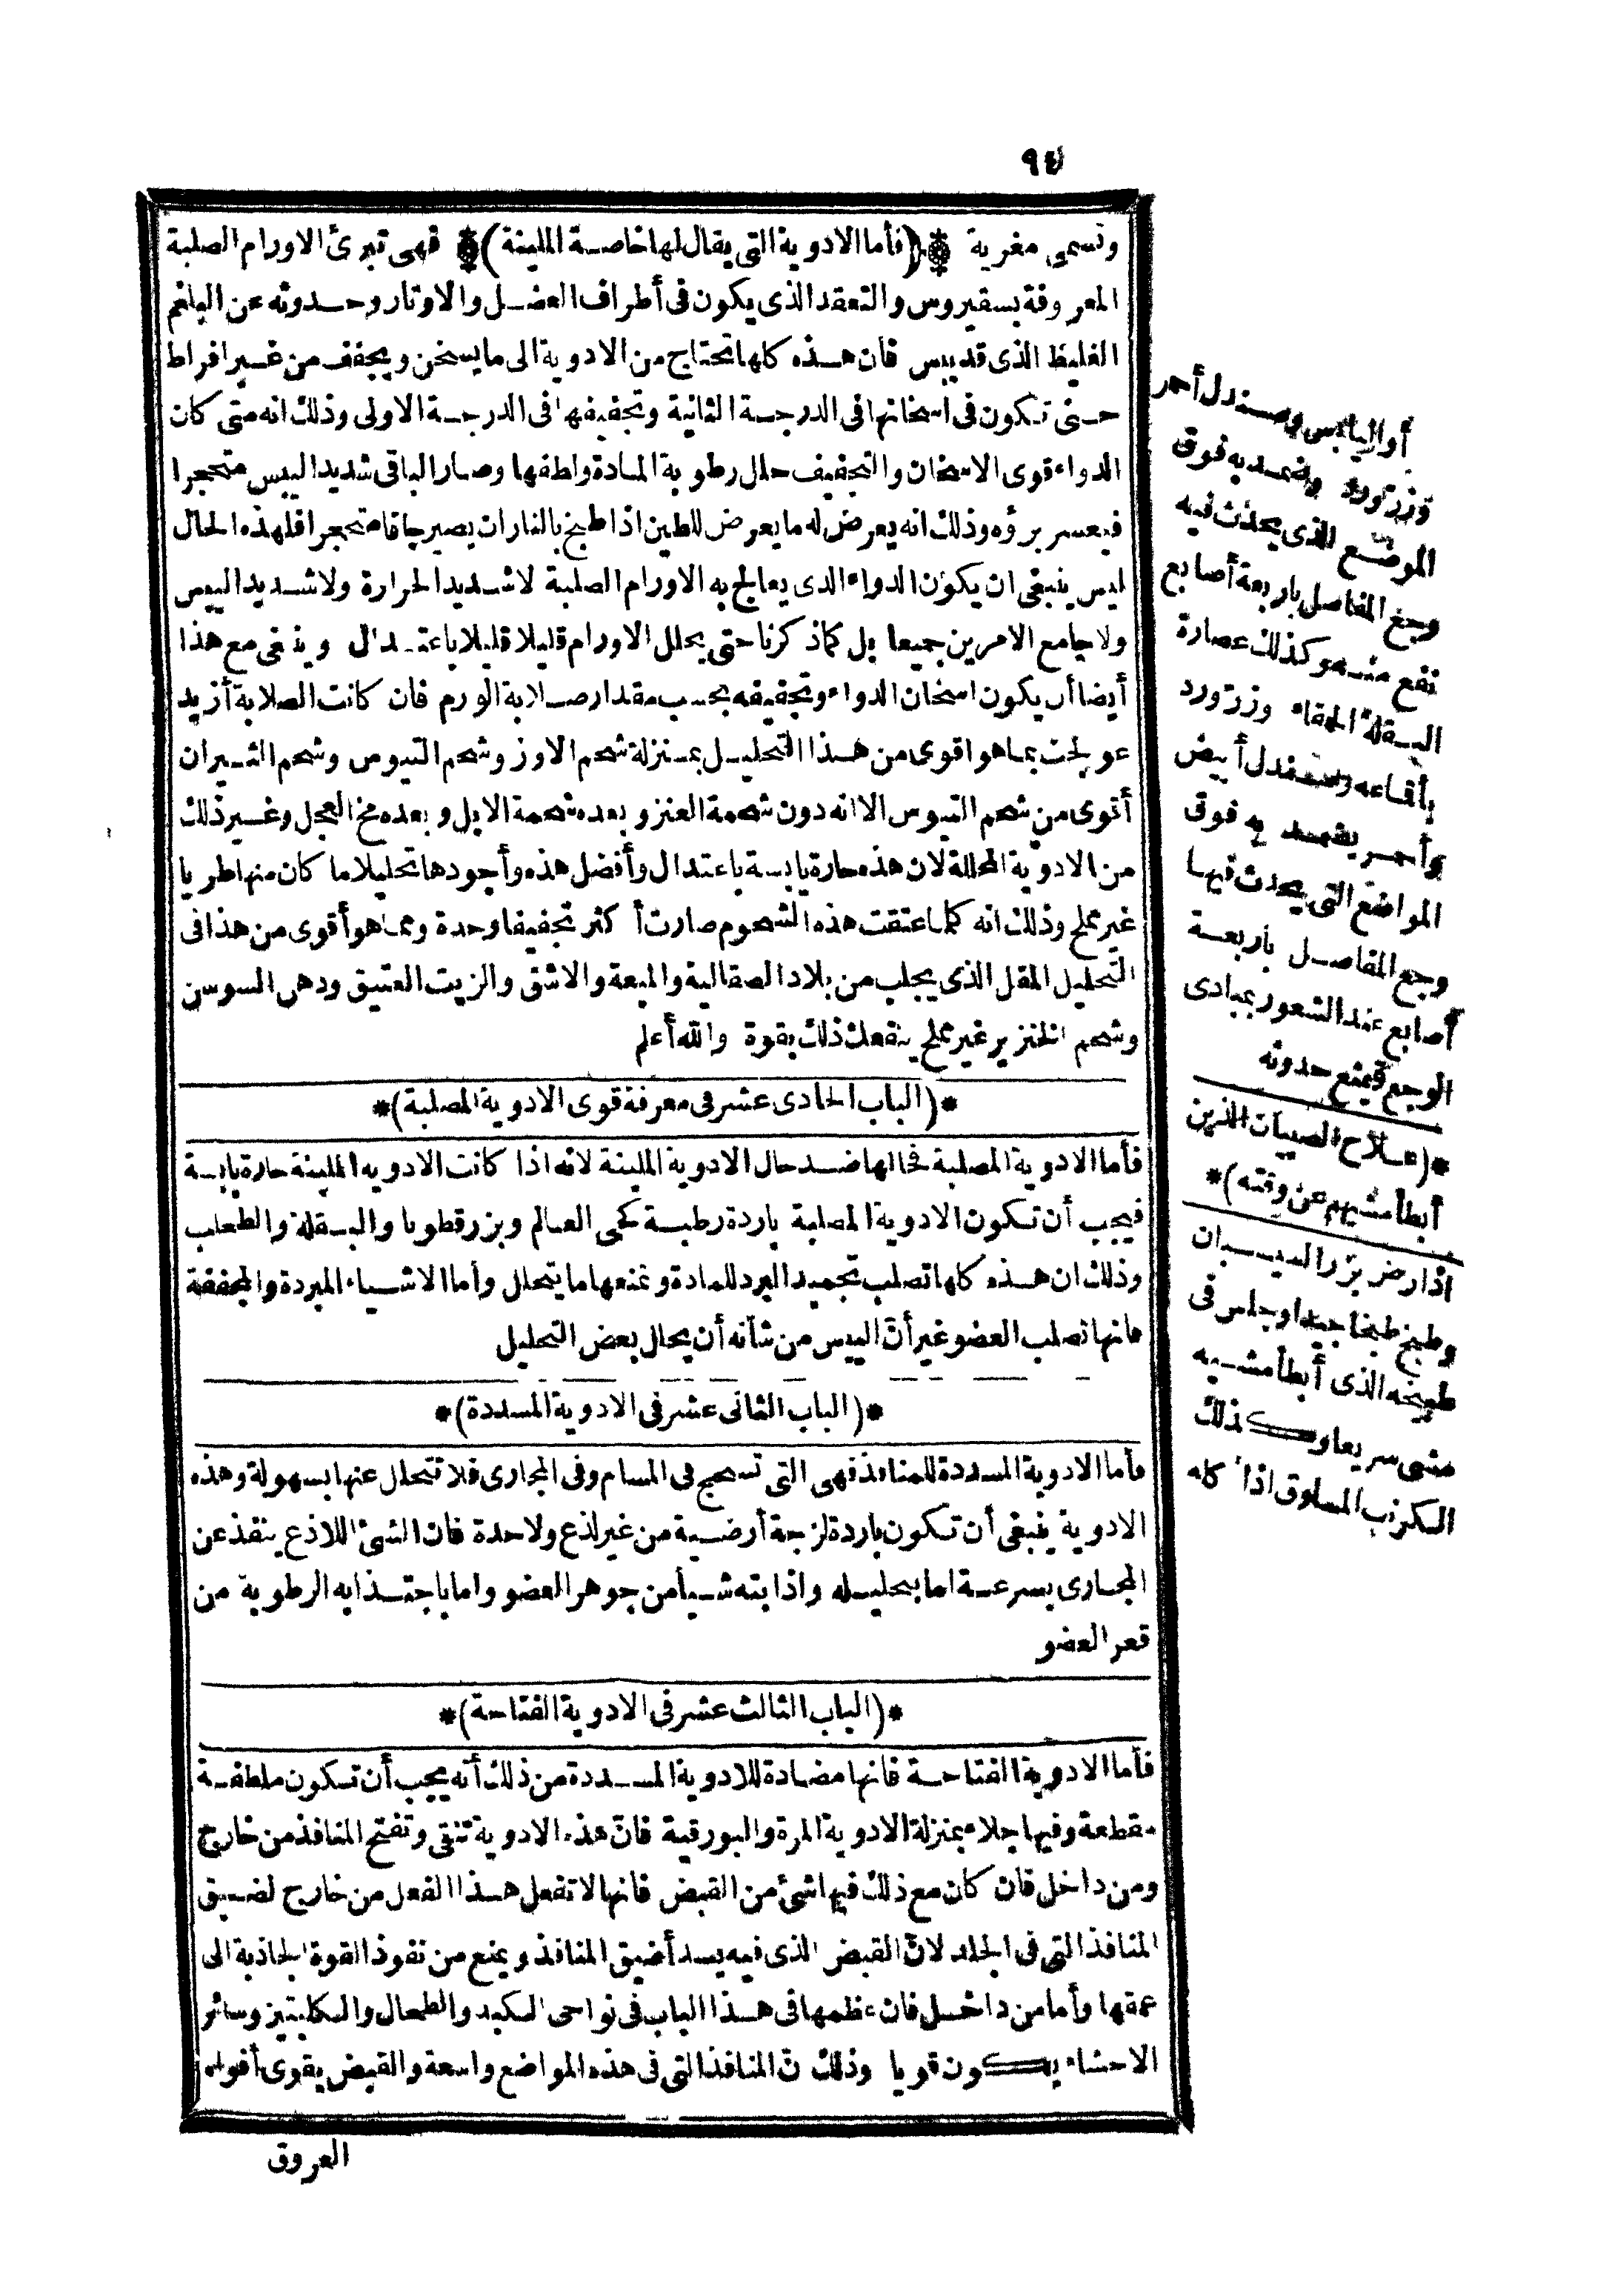 ٩٤
وتسمى مغرية ﴿(فأما الادوية التى يقال لها خاصة الملينة)﴾ فهى تبرئ الاورام الصلبة
المعروفة بسقيروس والتعقد الذى يكون فى أطراف العضل والاوتار وحدوثه عن البلغم
الغليظ الذى قد يبس فان هذه كلها تحتاج من الادوية الى ما يسخن ويجفف من غير افراط
حتى تكون فى اسخانها فى الدرجة الثانية وتجفيفها فى الدرجة الاولى وذلك انه متى كان
الدواء قوى الاسخان والتجفيف حلل رطوبة المادة ولطفها وصار الباقى شديد اليبس متحجرا
فيعسر برؤه وذلك انه يعرض له ما يعرض للطين اذا طبخ بالنار ان يصير جافا متحجرا فلهذه الحال
ليس ينبغى ان يكون الدواء الذى يعالج به الاورام الصلبة لا شديد الحرارة ولا شديد اليبس
ولا جامع الامرين جميعا بل كماذ كرنا حتى يحلل الاورام قليلا قليلا باعتدال وينبغى مع هذا
أيضا أن يكون اسخان الدواء وتجفيفه بحسب مقدار صلابة الورم فان كانت الصلابة أزيد
عولجت بما هو اقوى من هذا التحليل بمنزلة شحم الاوز وشحم التيوس وشحم الثيران
أقوى من شحم التيوس الا انه دون شحمة العنز وبعده شحمة الايل وبعده مخ العجل وغير ذلك
من الادوية المحللة لان هذه حارة يابسة باعتدال وأفضل هذه وأجودها تحليلا ما كان منها طريا
غير مملح وذلك انه كلما عتقت هذه الشحوم صارت أكثر تجفيفا وحدة ومما هو أقوى من هذا فى
التحليل المقل الذى يجلب من بلاد الصقالية والميعة والاشق والزيت العتيق ودهن السوسن
وشحم الخنزير غير مملح ينفعك ذلك بقوة والله أعلم
*(الباب الحادى عشر فى معرفة قوى الادوية المصلبة)*
فأما الادوية المصلبة فحالها ضد حال الادوية الملينة لانه اذا كانت الادوية الملينة حارة يابسة
فيجب أن تكون الادوية المصلبة باردة رطبة كحى العالم وبزرقطونا والبقلة والطحلب
وذلك ان هذه كلها تصلب بتجميد البرد للمادة وتمنعها ما يتحلل وأما الاشياء المبردة والمجففة
فانها تصلب العضو غير أن اليبس من شأنه أن يحلل بعض التحليل
*(الباب الثانى عشر فى الادوية المسددة)*
فأما الادوية المسددة للمنافذ فهى التى تسحج فى المسام وفى المجارى فلا تتحلل عنها بسهولة وهذه
الادوية ينبغى أن تكون باردة لزجة أرضية من غير لذع ولا حدة فان الشئ اللاذع ينفذ عن
المجارى بسرعة اما بتحليله واذابته شيأ من جوهر العضو واما باجتذابه الرطوبة من
قعر العضو
*(الباب الثالث عشر فى الادوية الفتاحة)*
فأما الادوية الفتاحة فانها مضادة للادوية المسددة من ذلك أنه يجب أن تكون ملطفة
مقطعة وفيها جلاء بمنزلة الادوية المرة والبورقية فان هذه الادوية تنقى وتفتح المنافذ من خارج
ومن داخل فان كان مع ذلك فيها شئ من القبض فانها لا تفعل هذا الفعل من خارج لضيق
المنافذ التى فى الجلد لان القبض الذى فيه يسد أضيق المنافذ ويمنع من نفوذ القوة الجاذبة الى
عمقها وأما من داخل فان عظمها فى هذا الباب فى نواحى الكبد والطحال والكليتين وسائر
الاحشاء يكون قويا وذلك ن المنافذ التى فى هذه المواضع واسعة والقبض يقوى أفواه
العروق
أو اليابس وصندل أحمر
وزرورد وضمد به فوق
الموضع الذى يحدث فيه
وجع المفاصل باربعة أصابع
نفع منه وكذلك عصارة
البقلة الحمقاء وزرورد
بأقماعه وصندل أبيض
وأحمر يضمد به فوق
المواضع التى يحدث فيها
وجع المفاصل بأربعة
أصابع عند الشعور بمبادى
الوجع فيمنع حدوثه
*(علاج الصبيان الذين
أبطأ مشيهم عن وقته)*
اذا رض بزر السيسبان
وطبخ طبخا جيدا وجلس فى
طبيخه الذى أبطأ مشيه
مشى سريعا وكذلك
الكرنب المسلوق اذا كله